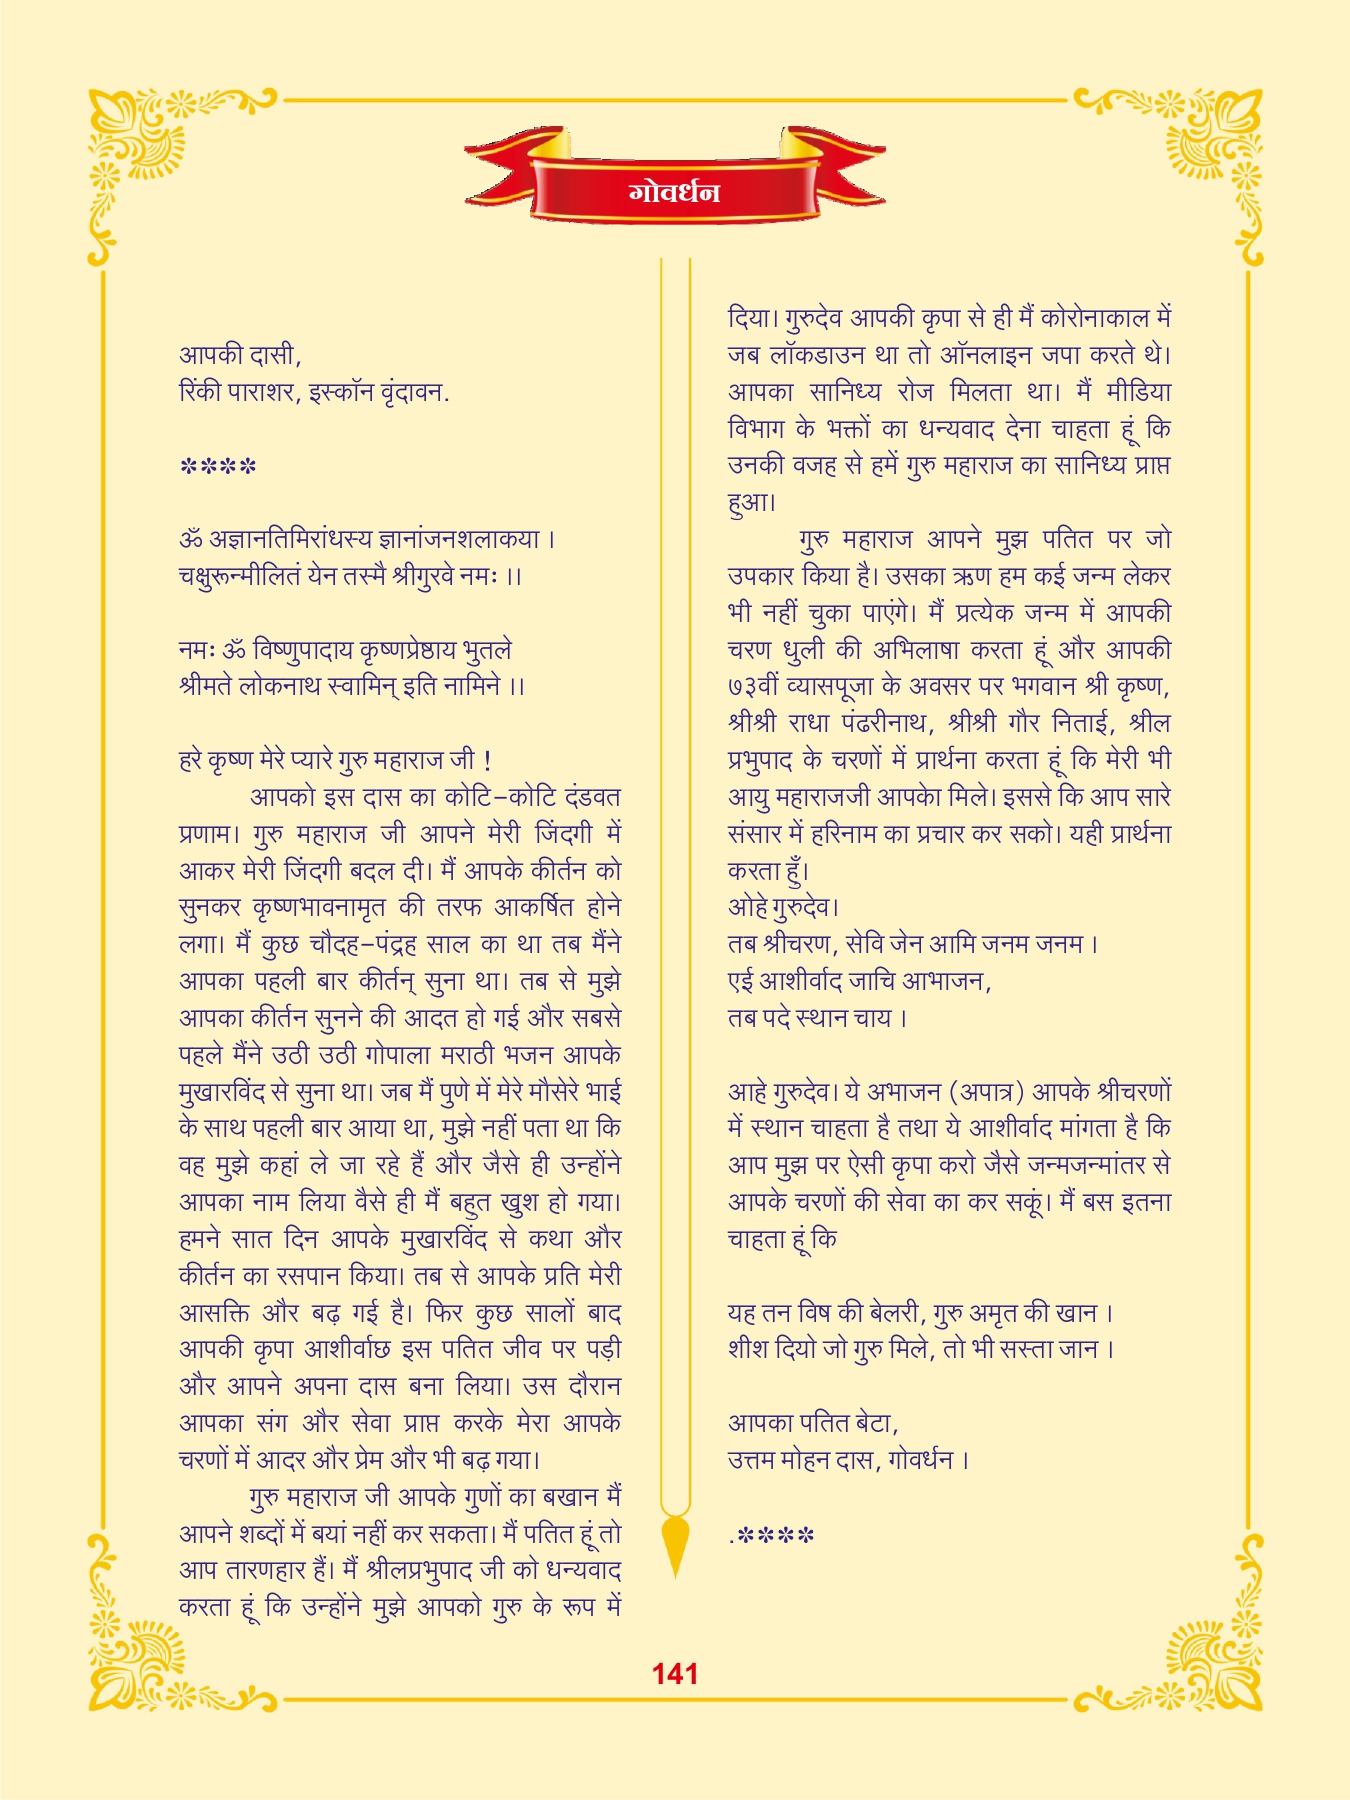 गोवर्धन
आपकी दासी,
रिंकी पाराशर, इस्कॉन वृंदावन.
****
ॐ अज्ञानतिमिरांधस्य ज्ञानांजनशलाकया ।
चक्षुरून्मीलितं येन तस्मै श्रीगुरवे नमः ।।
नमः ॐ विष्णुपादाय कृष्णप्रेष्ठाय भुतले
श्रीमते लोकनाथ स्वामिन् इति नामिने ।।
हरे कृष्ण मेरे प्यारे गुरु महाराज जी !
आपको इस दास का कोटि-कोटि दंडवत
प्रणाम। गुरु महाराज जी आपने मेरी जिंदगी में
आकर मेरी जिंदगी बदल दी। मैं आपके कीर्तन को
सुनकर कृष्णभावनामृत की तरफ आकर्षित होने
लगा। मैं कुछ चौदह-पंद्रह साल का था तब मैंने
आपका पहली बार कीर्तन् सुना था। तब से मुझे
आपका कीर्तन सुनने की आदत हो गई और सबसे
पहले मैंने उठी उठी गोपाला मराठी भजन आपके
मुखारविंद से सुना था। जब मैं पुणे में मेरे मौसेरे भाई
के साथ पहली बार आया था, मुझे नहीं पता था कि
वह मुझे कहां ले जा रहे हैं और जैसे ही उन्होंने
आपका नाम लिया वैसे ही मैं बहुत खुश हो गया।
हमने सात दिन आपके मुखारविंद से कथा और
कीर्तन का रसपान किया। तब से आपके प्रति मेरी
आसक्ति और बढ़ गई है। फिर कुछ सालों बाद
आपकी कृपा आशीर्वाछ इस पतित जीव पर पड़ी
और आपने अपना दास बना लिया। उस दौरान
आपका संग और सेवा प्राप्त करके मेरा आपके
चरणों में आदर और प्रेम और भी बढ़ गया।
गुरु महाराज जी आपके गुणों का बखान मैं
आपने शब्दों में बयां नहीं कर सकता। मैं पतित हूं तो
आप तारणहार हैं। मैं श्रीलप्रभुपाद जी को धन्यवाद
करता हूं कि उन्होंने मुझे आपको गुरु के रूप में
दिया। गुरुदेव आपकी कृपा से ही मैं कोरोनाकाल में
जब लॉकडाउन था तो ऑनलाइन जपा करते थे।
आपका सानिध्य रोज मिलता था। मैं मीडिया
विभाग के भक्तों का धन्यवाद देना चाहता हूं कि
उनकी वजह से हमें गुरु महाराज का सानिध्य प्राप्त
हुआ।
गुरु महाराज आपने मुझ पतित पर जो
उपकार किया है। उसका ऋण हम कई जन्म लेकर
भी नहीं चुका पाएंगे। मैं प्रत्येक जन्म में आपकी
चरण धुली की अभिलाषा करता हूं और आपकी
७३वीं व्यासपूजा के अवसर पर भगवान श्री कृष्ण,
श्रीश्री राधा पंढरीनाथ, श्रीश्री गौर निताई, श्रील
प्रभुपाद के चरणों में प्रार्थना करता हूं कि मेरी भी
आयु महाराजजी आपकेा मिले। इससे कि आप सारे
संसार में हरिनाम का प्रचार कर सको। यही प्रार्थना
करता हुँ।
ओहे गुरुदेव।
तब श्रीचरण, सेवि जेन आमि जनम जनम ।
एई आशीर्वाद जाचि आभाजन,
तब पदे स्थान चाय ।
आहे गुरुदेव। ये अभाजन (अपात्र) आपके श्रीचरणों
में स्थान चाहता है तथा ये आशीर्वाद मांगता है कि
आप मुझ पर ऐसी कृपा करो जैसे जन्मजन्मांतर से
आपके चरणों की सेवा का कर सकूं। मैं बस इतना
चाहता हूं कि
यह तन विष की बेलरी, गुरु अमृत की खान ।
शीश दियो जो गुरु मिले, तो भी सस्ता जान ।
आपका पतित बेटा,
उत्तम मोहन दास, गोवर्धन ।
.****
141